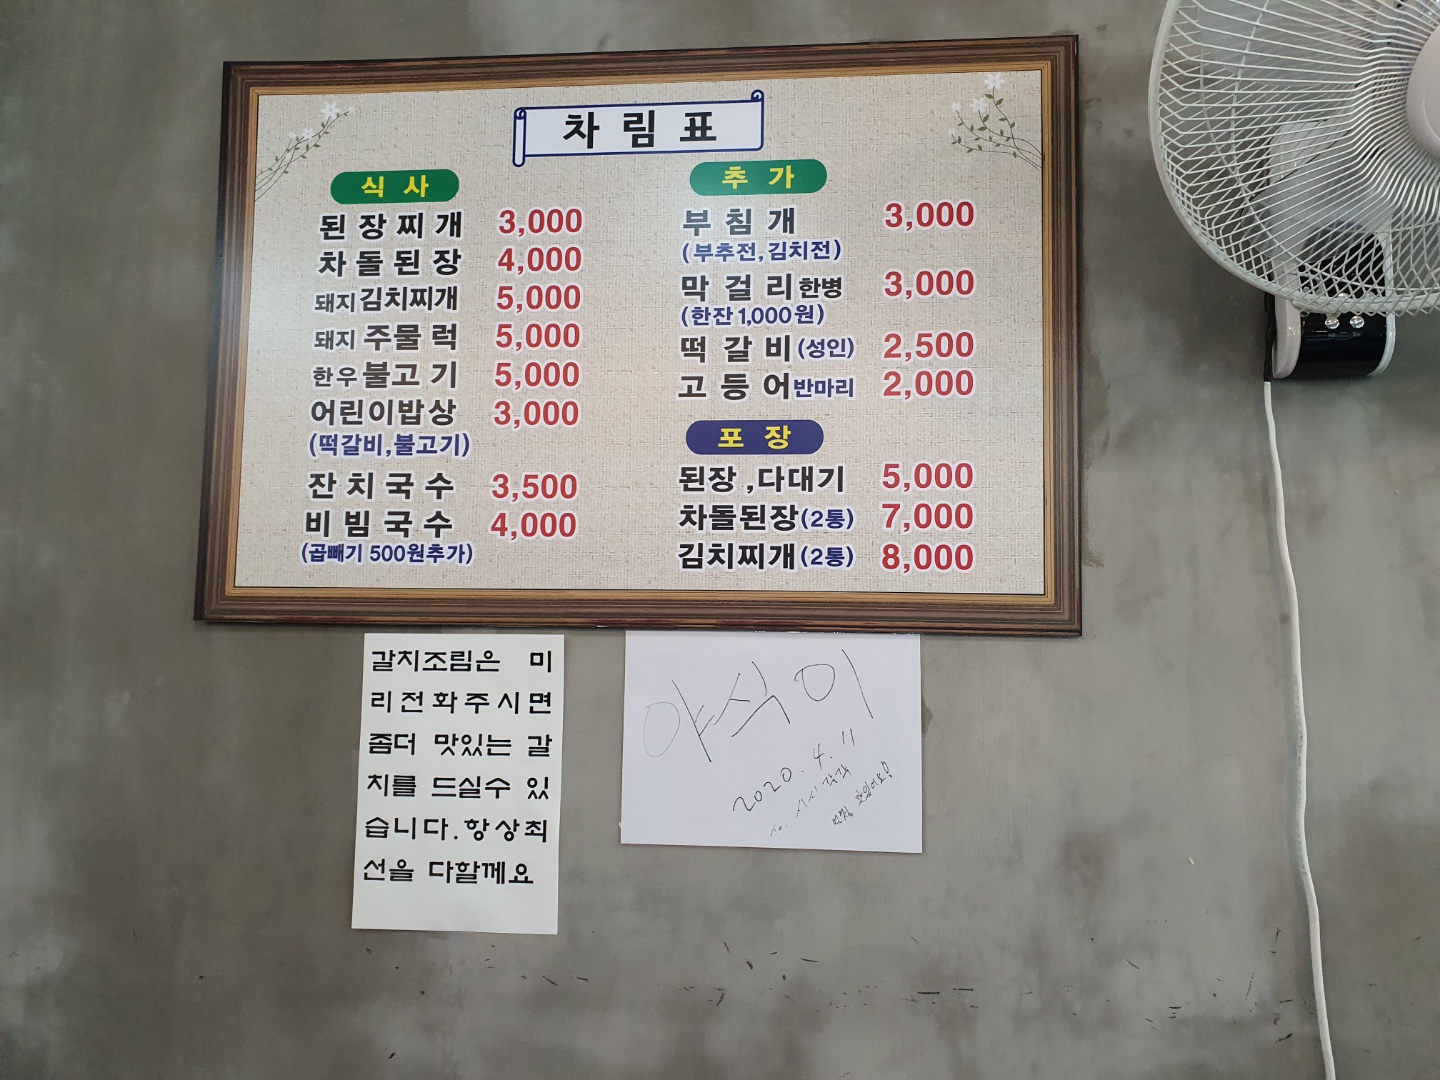 차림표
식사
된장찌개 3,000
차돌된장 4,000
돼지김치찌개 5,000
돼지 주물럭 5,000
한우불고기 5,000
어린이밥상 3,000
(떡갈비,불고기)
잔치국수 3,500
비빔국수 4,000
(곱빼기 500원추가)
추가
부침개 3,000
(부추전,김치전)
막걸리한병 3,000
(한잔1,000원)
떡갈비(성인) 2,500
고등어반마리 2,000
포장
된장,다대기 5,000
차돌된장(2통) 7,000
김치찌개(2통) 8,000
갈치조림은 미
리전화주시면
좀더 맛있는 갈
치를 드실수 있
습니다.항상최
선을 다할께요
야식이
2020.4.11
맛있어요!